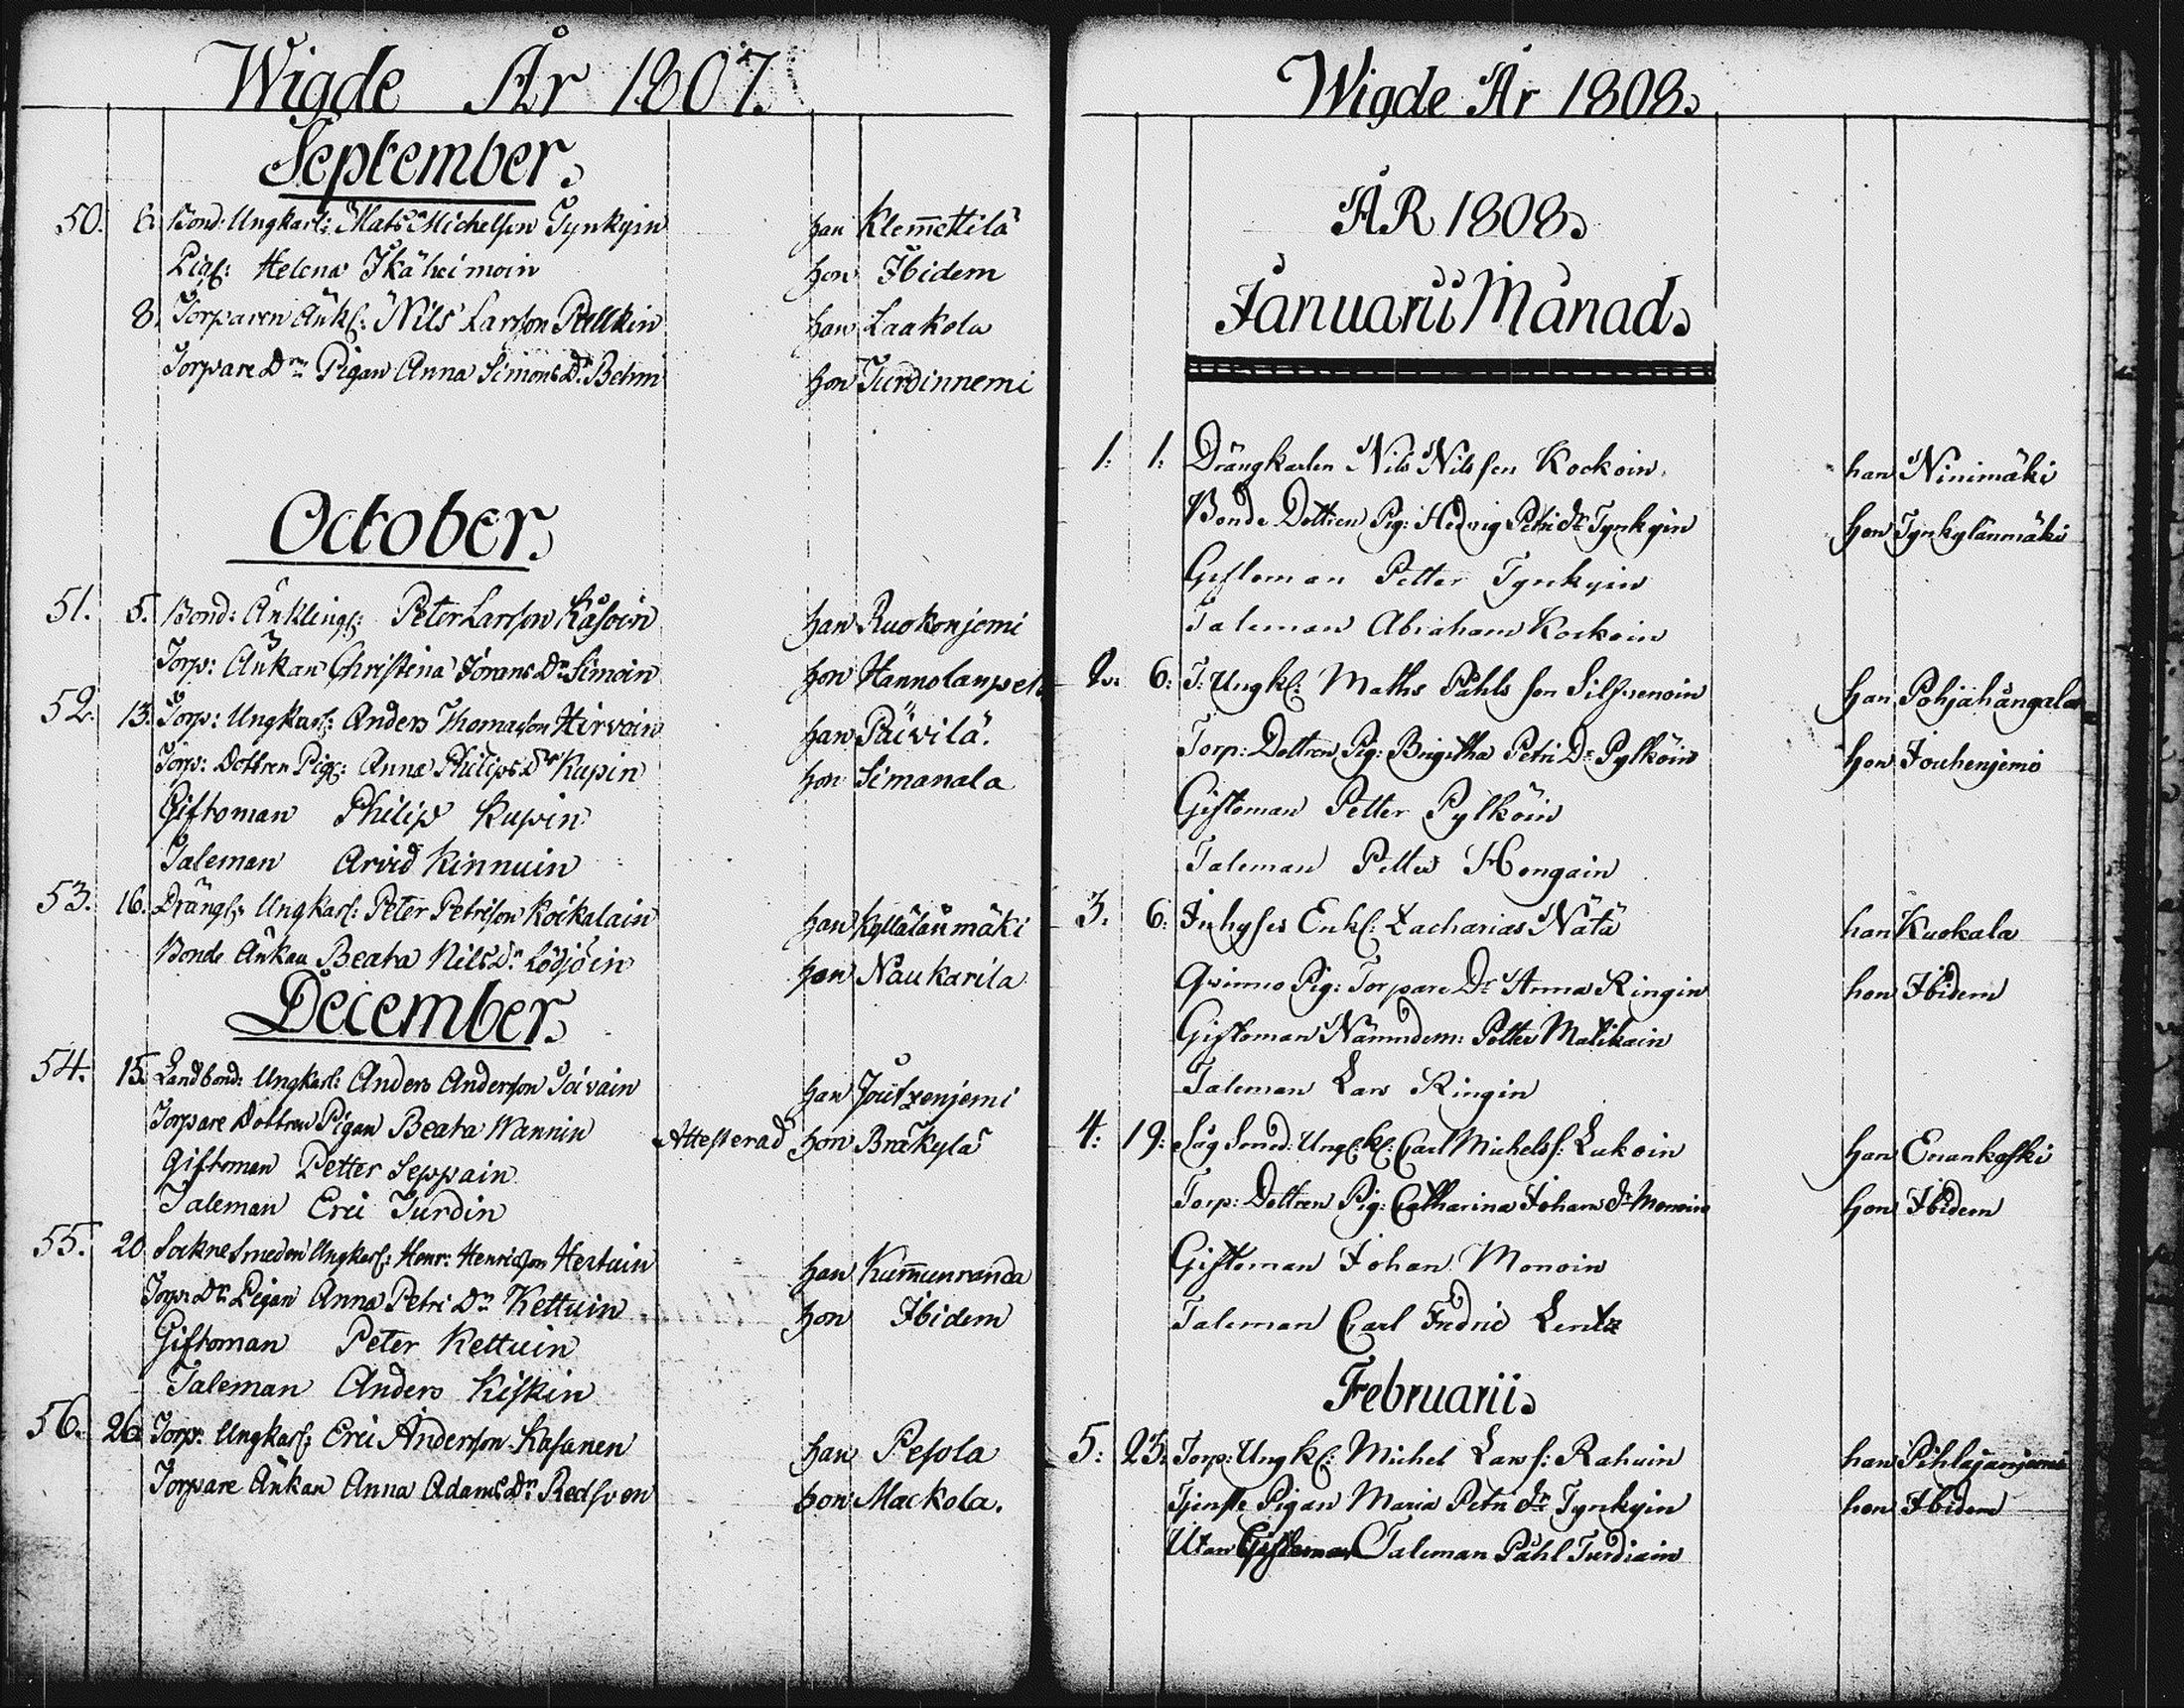 Wigde År 1807.
September.
50. 6. Bond: Ungkarl: Mats Michelsson Tynkyin han Klem̅ettilä
Pig: Helena Ikäheimoin hon Ibidem
8. Torparen Änkl: Nils Larsson Pellkin han Laakola
Torpare Drn Pigan Anna Simons Dr Behm hon Turdinnemi
October.
51. 5. Bond: Änklingr: Peter Larsson Kåsoin han Ruokonjemi
Torp: Änkan Christina Jörans Dr Simoin hon Hannolanpelt
52. 13. Torp: Ungkarl: Anders Thomasson Hirvoin han Päivilä.
Torp: Dottren Pig: Anna Philips Dr Kupin hon Simanala
Giftoman Philip Kupin
Taleman Arvid Kinnuin
53. 16. Drängs: Ungkarl: Peter Petrisson Koikalain han Kyllälänmäki
Bonde Änkan Beata Nils Dr Lödjöin hon Naukarila
December.
54. 15. Landbond: Ungkarl: Anders Andersson Toivain han Joutzenjemi
Torpare Dottren Pigan Beata Wannin Attesterad hon Bräkylä
Giftoman Petter Seppain
Taleman Eric Turdin
55. 20 Sockne Smeden Ungkarl: Henr: Henricsson Hertuin han Kum̅unranda
Torp: Dr Pigan Anna Petri Dr Kettuin hon Ibidem
Giftoman Peter Kettuin
Taleman Anders Kiskin
56. 26 Torp: Ungkarl: Eric Andersson Kasanen han Pesola
Torpare Änkan Anna Adams Dr Redsven hon Mackola.
Wigde År 1808.
ÅR 1808.
Januarii Månad.
1: 1: Drängkarlen Nils Nilsson Kockoin han Ninimäki
Bonde Dottren Pig: Hedvig Petri Dr Tynkyin hon Tynkylänmäki
Giftoman Petter Tynkyin
Taleman Abraham Kockoin
2: 6: T: Ungkl: Maths Påhls son Silfvenoin han Pohjahångala
Torp: Dottren Pig: Brigitha Petri Dr Pylköin hon Jouhenjemi
Giftoman Petter Pylköin
Taleman Petter Hongain
3: 6: Inhyses Enkl: Zacharias Nätä han Kuokala
Qvinno Pig: Torpare Dr Anna Ringin hon Ibidem
Giftoman Nämndem: Petter Matikain
Taleman Lars Ringin
4: 19: Såg Smed: Ung: k: Carl Michels s: Lukoin han Enankoski
Torp: Dottren Pig: Catharina Johans dr Monoin hon Ibidem
Giftoman Johan Monoin
Taleman Carl Fredric Lentz
Februarii.
5: 23: Torp: Ungkl: Michel Lars s: Rahuin han Pihlajanjemi
Tjenste Pigan Maria Petri dr Tynkyin hon Ibidem
Utan Giftoman Taleman Påhl Turdiain